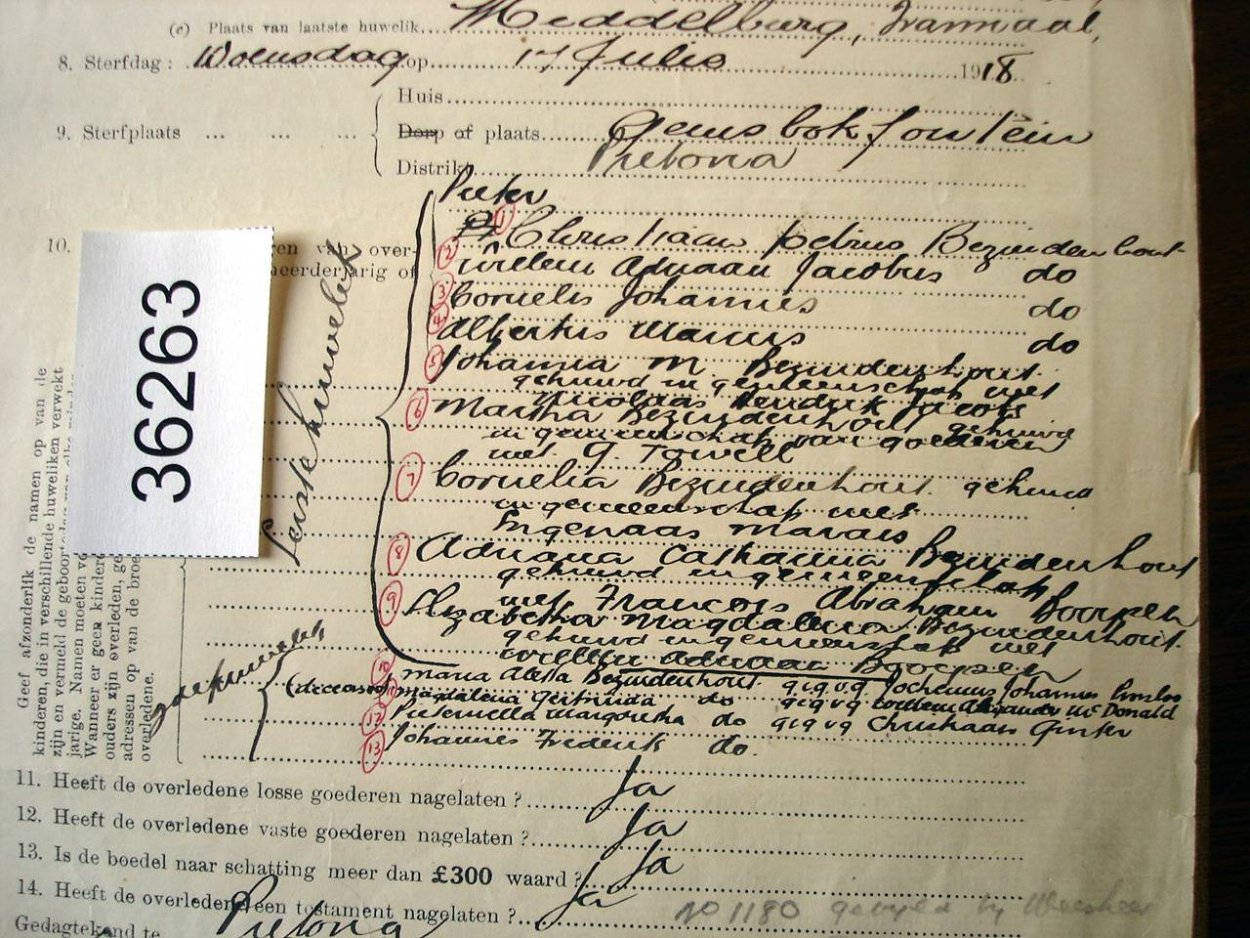 (c) Plaats van laatste huwelik Middelburg, Transvaal,
8. Sterfdag: Woensdag op 17 Julie 1918
Huis
9. Sterfplaats Dorp of plaats Gemsbokfontein
Distrikt Pretoria
Pieter
10.
(1) Christiaan Petrus Bezuidenhout
ren van over-
(2) Willem Adriaan Jacobus do
eerderjarig of
(3) Cornelis Johannes do
(4) Albertus Marcus do
(5) Johanna M. Bezuidenhout
gehuwd in gemeenschap met
Nicolaas Hendrik Jacobs
(6) Martha Bezuidenhout gehuwd
in gemeenschap van goederen
met G. Towell
(7) Cornelia Bezuidenhout gehuwd
in gemeenschap met
Ingenaas Marais
(8) Adriana Catharina Bezuidenhout
gehuwd in gemeenschap
met Francois Abraham Booysen
(9) Elizabetha Magdalena Bezuidenhout
gehuwd in gemeenschap met
Willem Adriaan Booysen
Eerste huwelik
(10) Maria Aletta Bezuidenhout g.i.g.v.g. Jochemus Johannes
(deceased) (11) Magdalena Gertruida do g.i.g.v.g. Willem Alexander McDonald
(12) Pieternella Margaretha do g.i.g.v.g. Christiaan
(13) Johannes Frederik do.
2de huwelik
Geef afzonderlik de namen op van de
kinderen, die in verschillende huweliken verwekt
zijn en vermeld de geboortedag van elke
jarige. Namen moeten vo
Wanneer er geen kindere
ouders zijn overleden, ge
adressen op van de broe
overledene.
36263
11. Heeft de overledene losse goederen nagelaten? Ja
12. Heeft de overledene vaste goederen nagelaten? Ja
13. Is de boedel naar schatting meer dan £300 waard? Ja
14. Heeft de overledene een testament nagelaten? Ja
No 1180
Gedagtekend te Pretoria